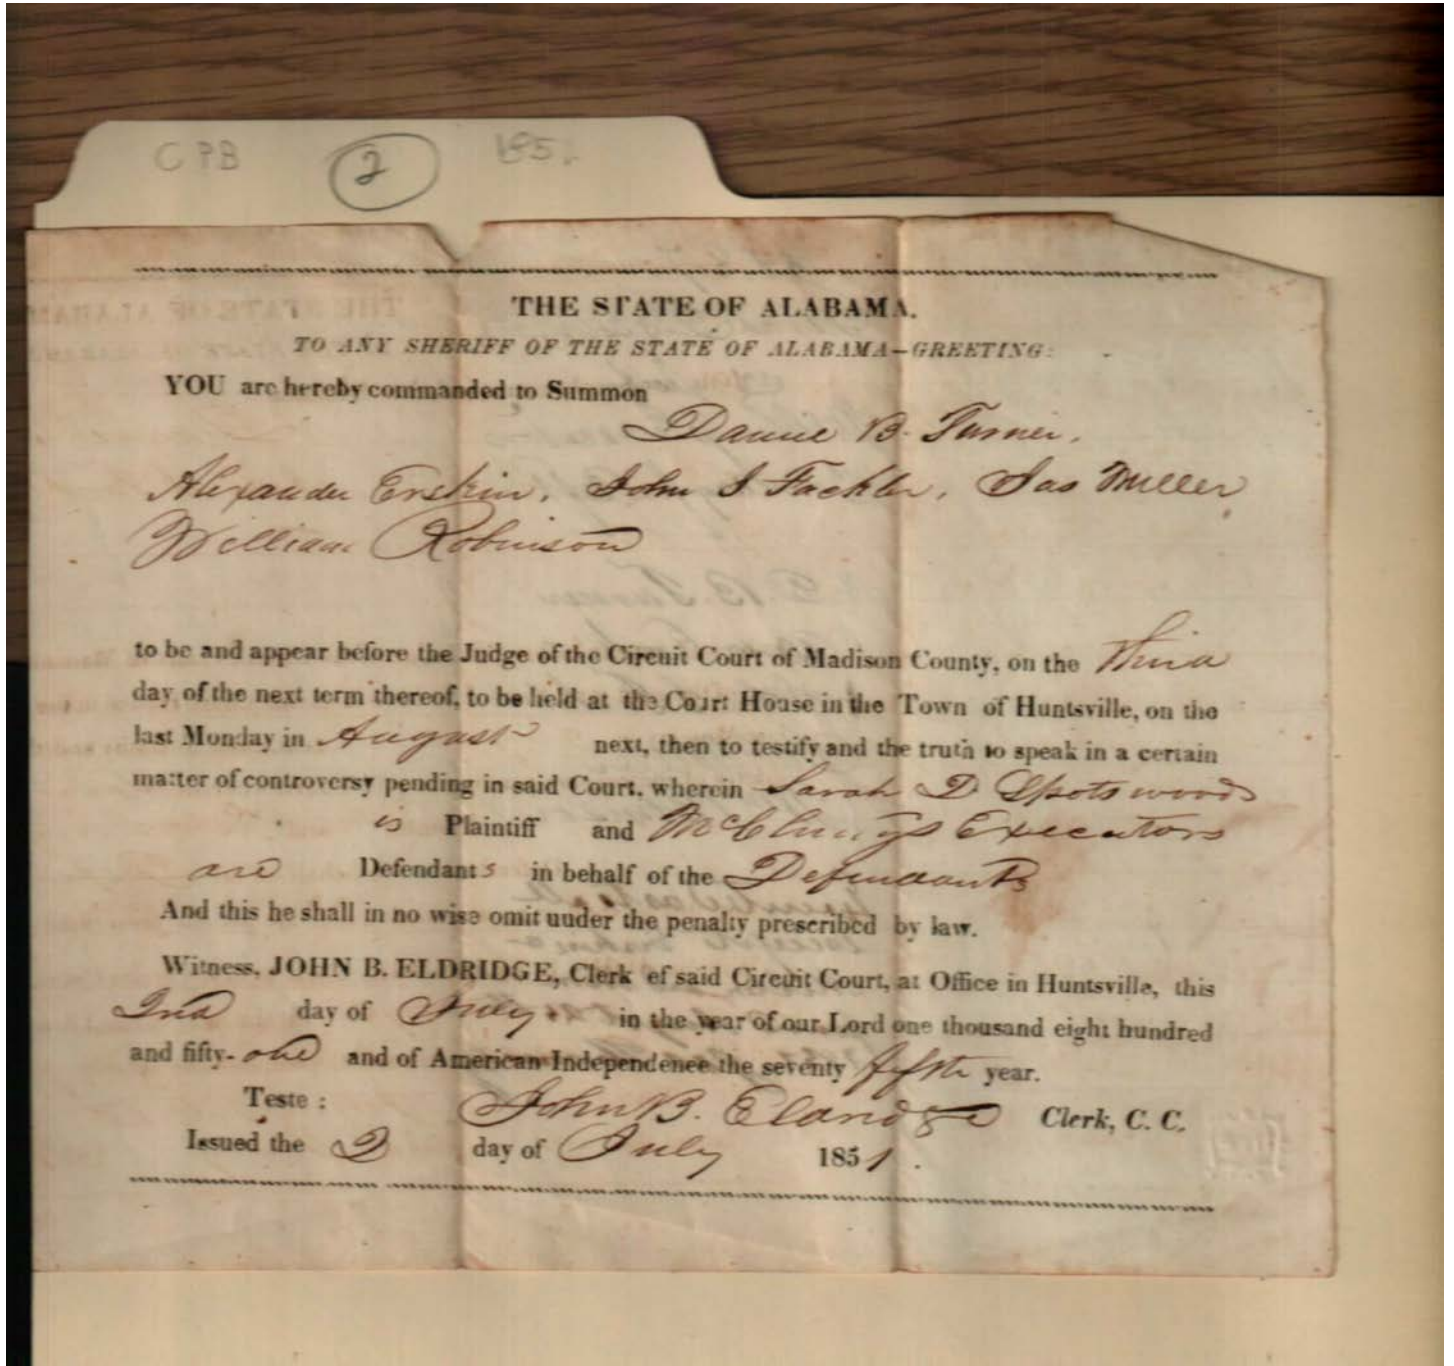 CPB 2 185.
THE STATE OF ALABAMA.
TO ANY SHERIFF OF THE STATE OF ALABAMA—GREETING:
YOU are hereby commanded to Summon
Daniel B. Turner,
Alexander Erskin, John S Fackler, Jas Miller
William Robinson
to be and appear before the Judge of the Circuit Court of Madison County, on the third
day of the next term thereof, to be held at the Court House in the Town of Huntsville, on the
last Monday in August next, then to testify and the truth to speak in a certain
matter of controversy pending in said Court, wherein Sarah D Spotswood
is Plaintiff and McClung's Executors
are Defendants in behalf of the Defendants
And this he shall in no wise omit under the penalty prescribed by law.
Witness, JOHN B. ELDRIDGE, Clerk ef said Circuit Court, at Office in Huntsville, this
2nd day of July in the year of our Lord one thousand eight hundred
and fifty-one and of American Independence the seventy fifth year.
Teste: John B. Eldridge Clerk, C. C.
Issued the 2 day of July 1851.